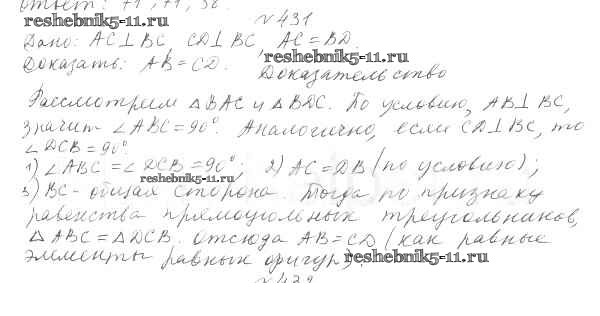 Ответ: 71, 71, 38.
reshebnik5-11.ru
№431
Дано: AC⊥BC, CD⊥BC, AC=BD.
reshebnik5-11.ru
Доказать: AB=CD.
Доказательство
Рассмотрим △BAC и △BDC. По условию, AB⊥BC,
значит ∠ABC=90°. Аналогично, если CD⊥BC, то
∠DCB=90°.
1) ∠ABC=∠DCB=90°; 2) AC=DB (по условию);
reshebnik5-11.ru
3) BC - общая сторона. Тогда по признаку
равенства прямоугольных треугольников,
△ABC=△DCB. Отсюда AB=CD (как равные
элементы равных фигур).
reshebnik5-11.ru